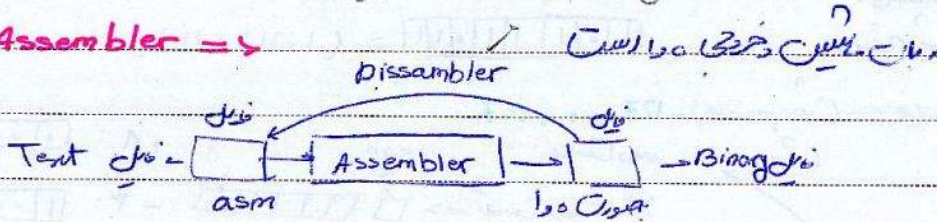 Assembler => زبان ماشین خروجی ۰ و ۱ است
Dissambler
فایل فایل
Text فایل Assembler Binary فایل
asm بصورت ۰ و ۱